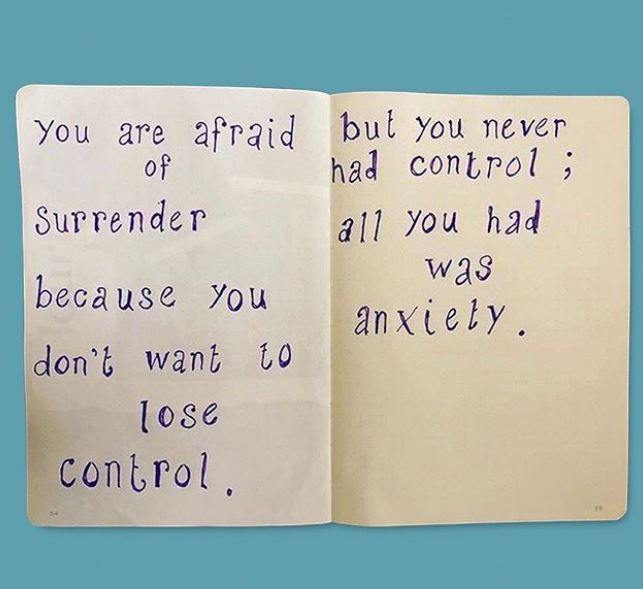 you are afraid
of
surrender
because you
don't want to
lose
control.
54
but you never
had control;
all you had
was
anxiety.